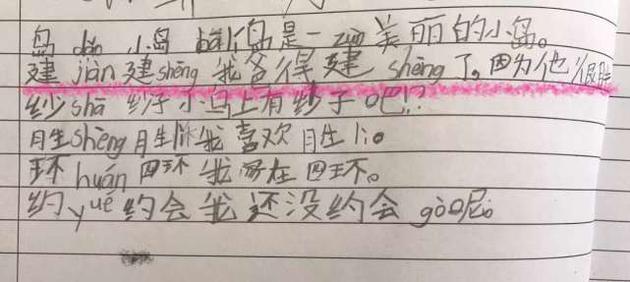 岛 小岛 岛是一 zuò 美丽的小岛。
建 jiàn 建 shēng 我 得建 shēng 了。因为他很
纱 shā 纱子 小 上有纱子吧!?
胜 shèng 胜 lì 我喜欢胜 li。
环 huán 四环 我 在四环。
约 yuē 约会 我还没约会 gò 呢。